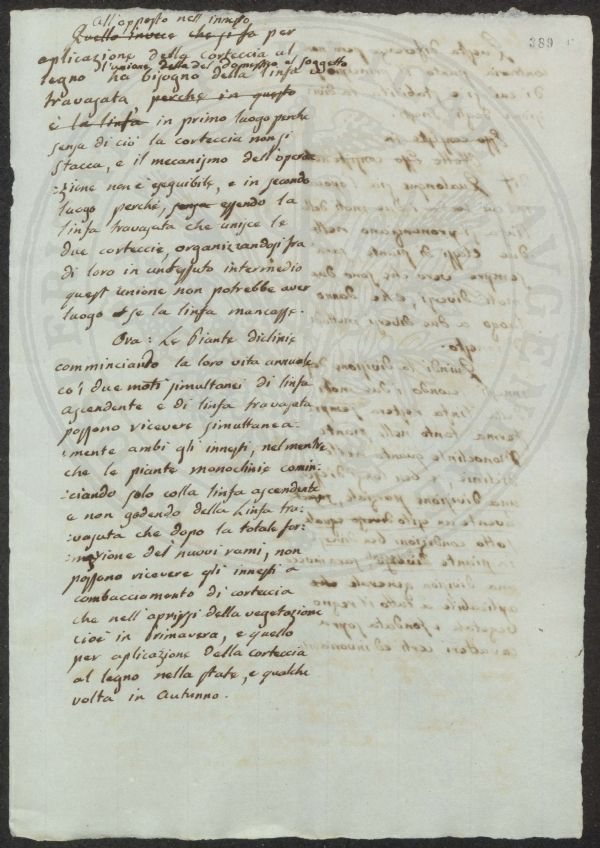 389
all'opposto nell'innesto,
Quello invece che si fa per
aplicazione della corteccia al
d'unione del domestico al soggetto
legno ha bisogno della linfa
travasata, perche in questo
è la linfa in primo luogo perche
senza di ciò la corteccia non si
stacca, e il mecanismo dell'opera-
:zione non è eseguibile, e in secondo
luogo perché, senza essendo la
linfa travasata che unisce le
due corteccie, organizzandosi fra
di loro in un tessuto intermedio
quest'unione non potrebbe aver
luogo se la linfa mancasse.
Ora: Le Piante diclinie
comminciando la loro vita annuale
co'i due moti simultanei di linfa
ascendente e di linfa travasata
possono ricevere simultanea-
:mente ambi gli innesti, nel mentre
che le piante monoclinie comin-
:ciando solo colla linfa ascendente
e non godendo della Linfa tra-
:vasata che dopo la totale for-
:mazione dei nuovi rami, non
possono ricevere gli innesti a
combacciamento di corteccia
che nell'aprirsi della vegetazione
cioè in primavera, e quello
per aplicazione della corteccia
al legno nella state, e qualche
volta in autunno.